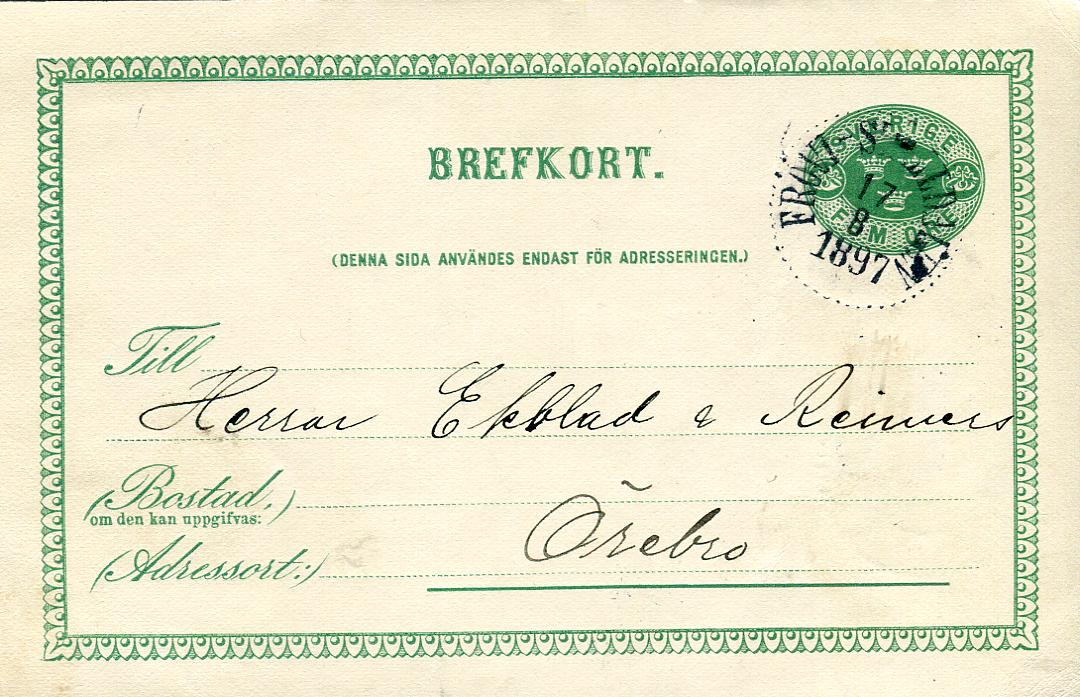 BREFKORT.
SVERIGE
FEM ÖRE
17
8
1897
(DENNA SIDA ANVÄNDES ENDAST FÖR ADRESSERINGEN.)
Till
Herrar Ekblad & Reimers
(Bostad,)
om den kan uppgifvas:
Örebro
(Adressort:)